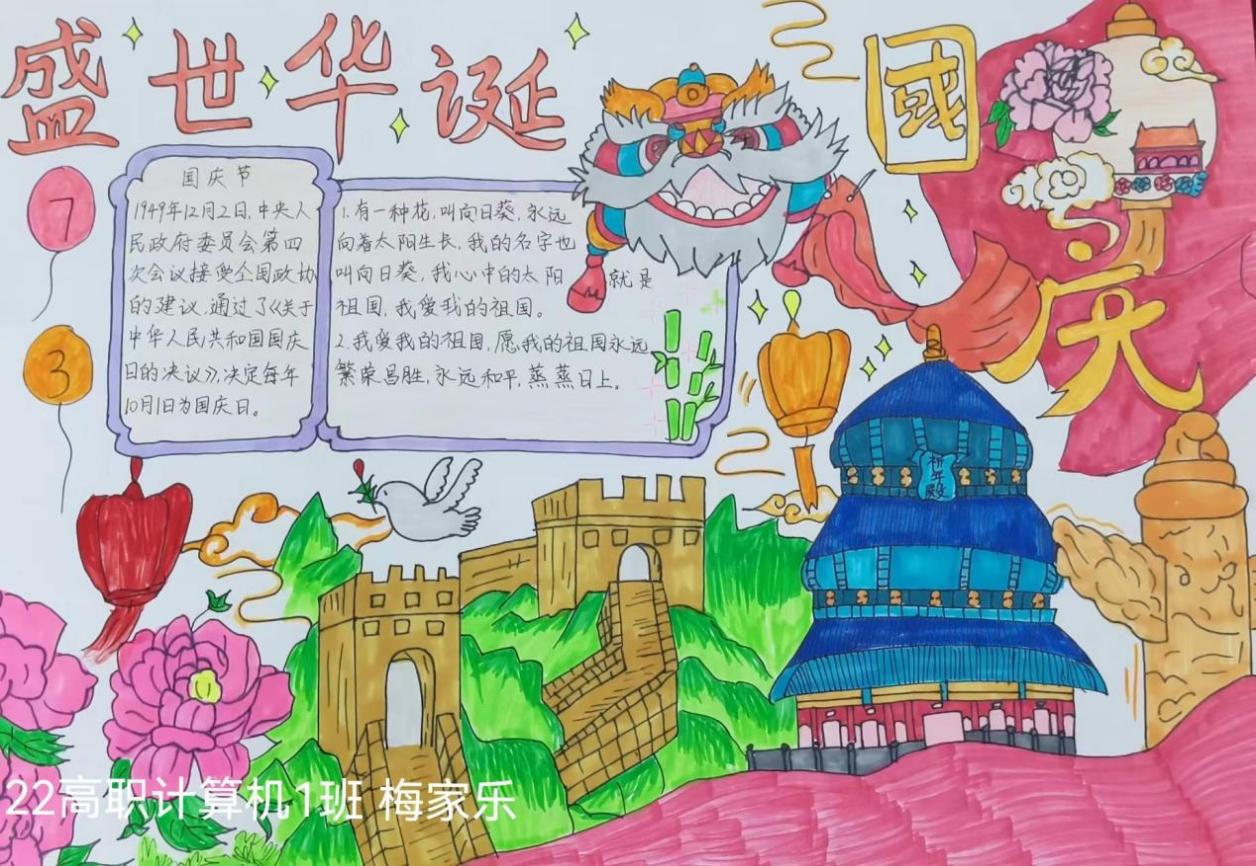 盛世华诞
國
庆
7
3
国庆节
1949年12月2日,中央人
民政府委员会第四
次会议接受全国政协
的建议,通过了《关于
中华人民共和国国庆
日的决议》,决定每年
10月1日为国庆日。
1.有一种花,叫向日葵,永远
向着太阳生长,我的名字也
叫向日葵,我心中的太阳就是
祖国,我爱我的祖国。
2.我爱我的祖国,愿我的祖国永远
繁荣昌胜,永远和平,蒸蒸日上。
祈年殿
22高职计算机1班 梅家乐